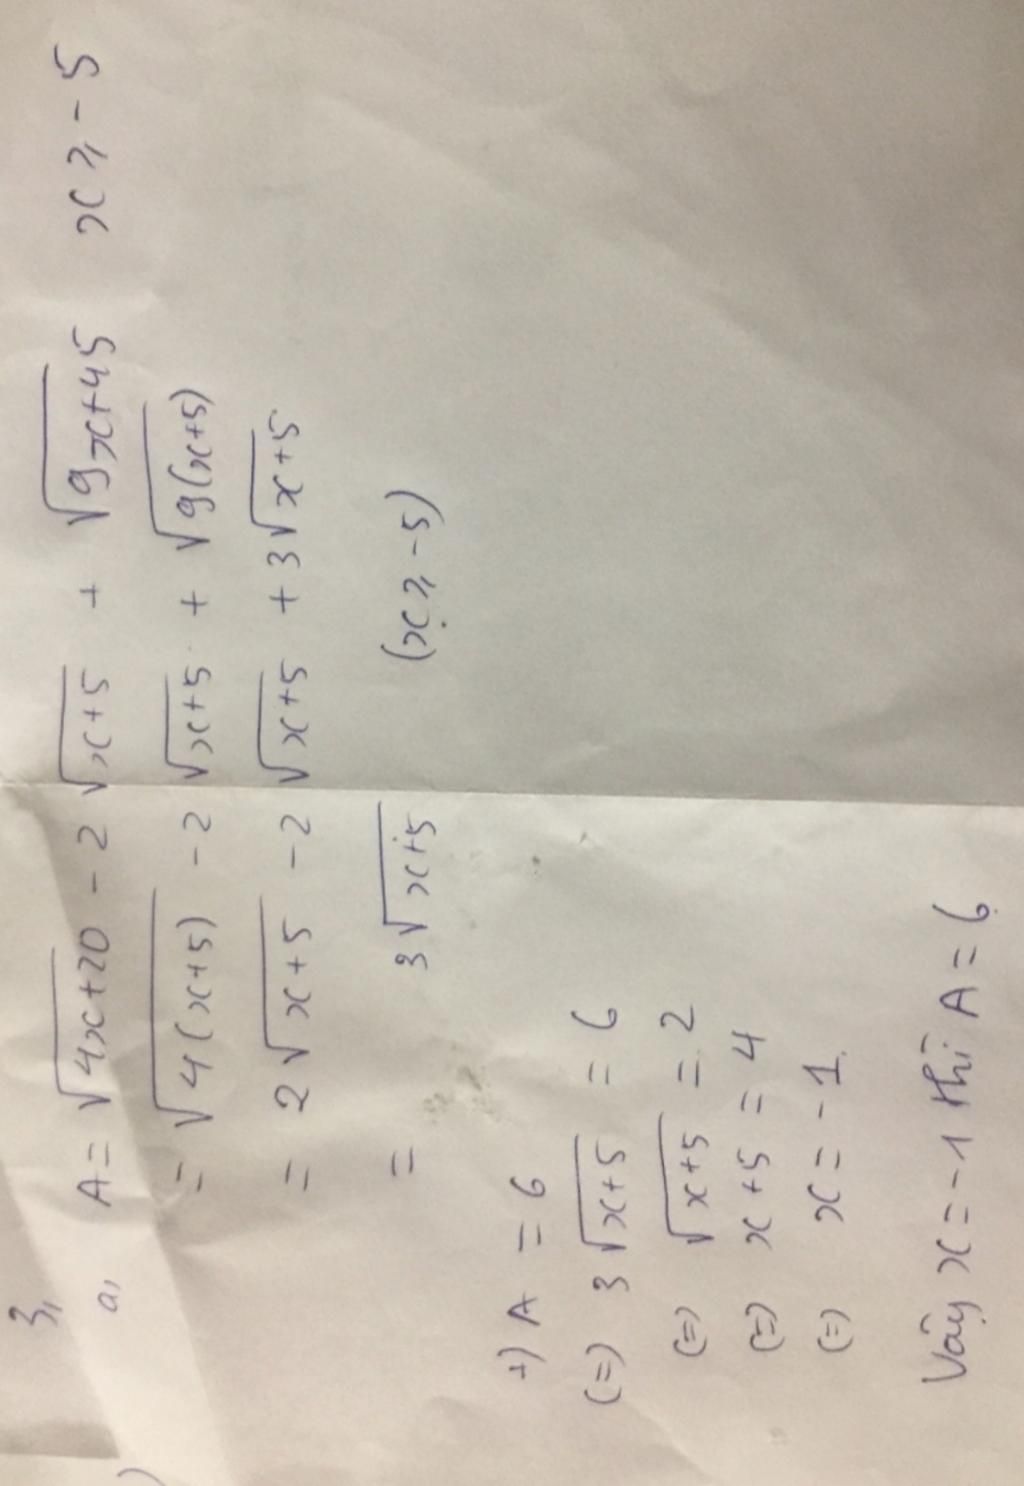 3,
a, A = √4x+20 - 2√x+5 + √9x+45 x ⩾ -5
= √4(x+5) - 2√x+5 + √9(x+5)
= 2√x+5 - 2√x+5 + 3√x+5
= 3√x+5 (x ⩾ -5)
+) A = 6
(=) 3√x+5 = 6
(=) √x+5 = 2
(=) x+5 = 4
(=) x = -1
Vậy x = -1 thì A = 6